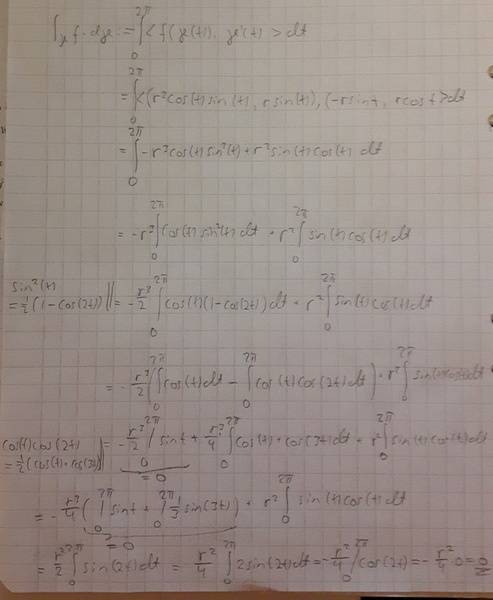 ∫_γ f · dγ := ∫_0^{2π} < f(γ(t)), γ'(t) > dt
= ∫_0^{2π} <(r² cos(t) sin(t), r sin(t)), (-r sin t, r cos t > dt
= ∫_0^{2π} -r³ cos(t) sin²(t) + r² sin(t) cos(t) dt
= -r³ ∫_0^{2π} cos(t) sin²(t) dt + r² ∫_0^{2π} sin(t) cos(t) dt
sin²(t) = ½(1 - cos(2t)) || = -r³/2 ∫_0^{2π} cos(t)(1 - cos(2t)) dt + r² ∫_0^{2π} sin(t) cos(t) dt
= -r³/2 ( ∫_0^{2π} cos(t) dt - ∫_0^{2π} cos(t) cos(2t) dt ) + r² ∫_0^{2π} sin(t) cos(t) dt
cos(t) cos(2t) = ½(cos(t) + cos(3t)) || = -r³/2 |_0^{2π} sin t + r³/4 ∫_0^{2π} cos(t) + cos(3t) dt + r² ∫_0^{2π} sin(t) cos(t) dt
= 0
= -r³/4 ( |_0^{2π} sin t + |_0^{2π} ⅓ sin(3t) ) + r² ∫_0^{2π} sin(t) cos(t) dt
= 0
= r²/2 ∫_0^{2π} sin(2t) dt = r²/4 ∫_0^{2π} 2 sin(2t) dt = -r²/4 |_0^{2π} cos(2t) = -r²/4 · 0 = 0